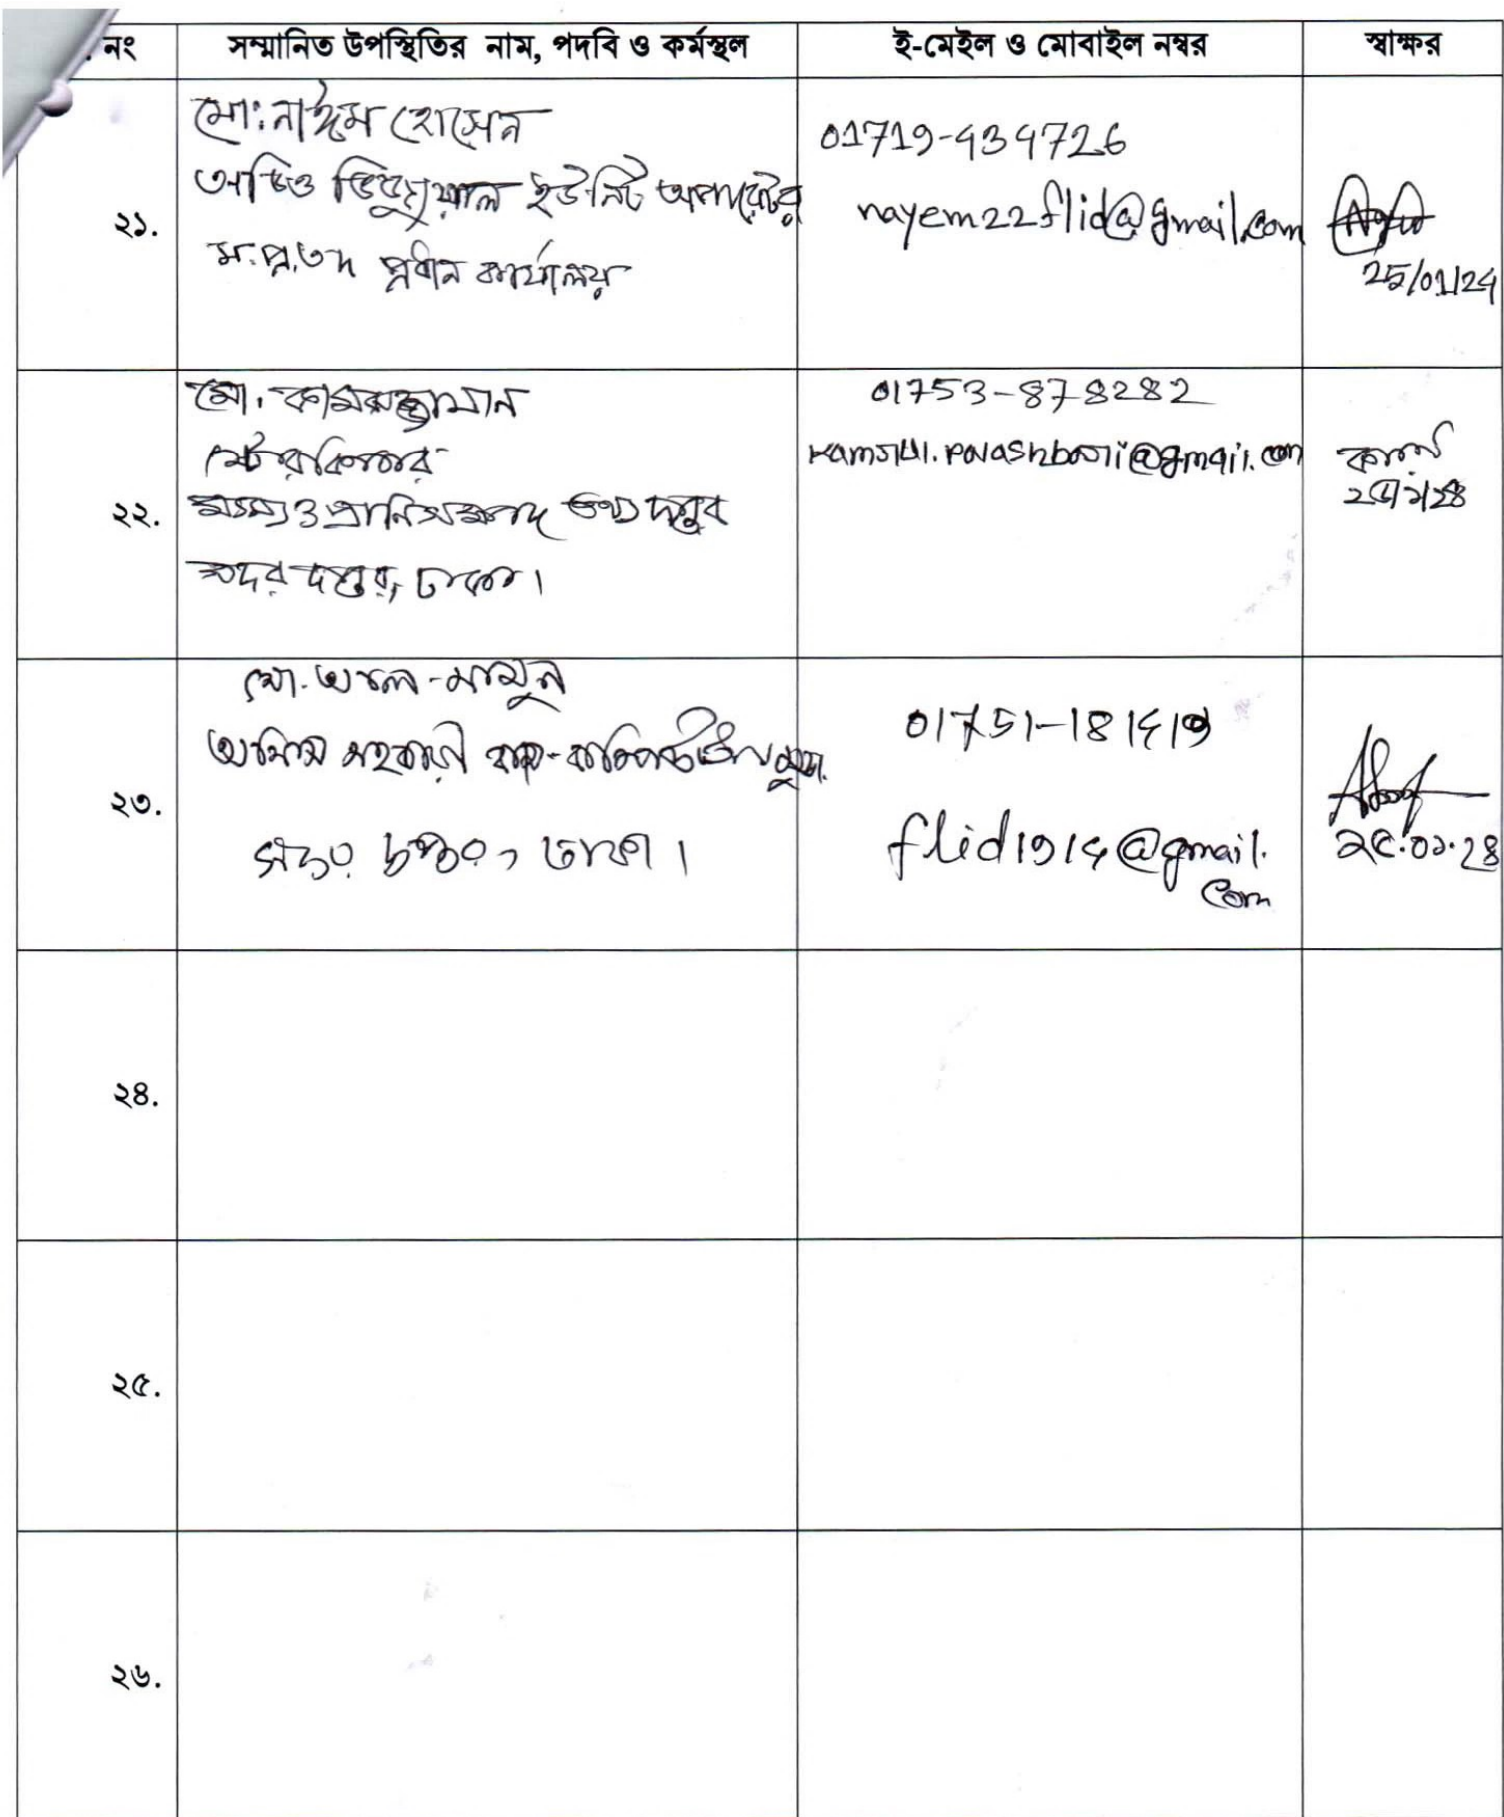 নং সম্মানিত উপস্থিতির নাম, পদবি ও কর্মস্থল ই-মেইল ও মোবাইল নম্বর স্বাক্ষর
মো: নাঈম হোসেন
অডিও ভিজুয়্যাল ইউনিট অপারেটর
ম.প্রা.ত.দ প্রধান কার্যালয়
01719-434726
nayem22flid@gmail.com
25/01/24
২১.
মো. কামরুজ্জামান
স্টোরকিপার
মৎস্য ও প্রাণিসম্পদ তথ্য দপ্তর
সদর দপ্তর, ঢাকা।
01753-878282
@gmail.com
২২.
মো. আল-মামুন
অফিস সহকারী
সদর দপ্তর, ঢাকা।
01751-181419
flid1914@gmail.
com
২৫.০১.২৪
২৩.
২৪.
২৫.
২৬.